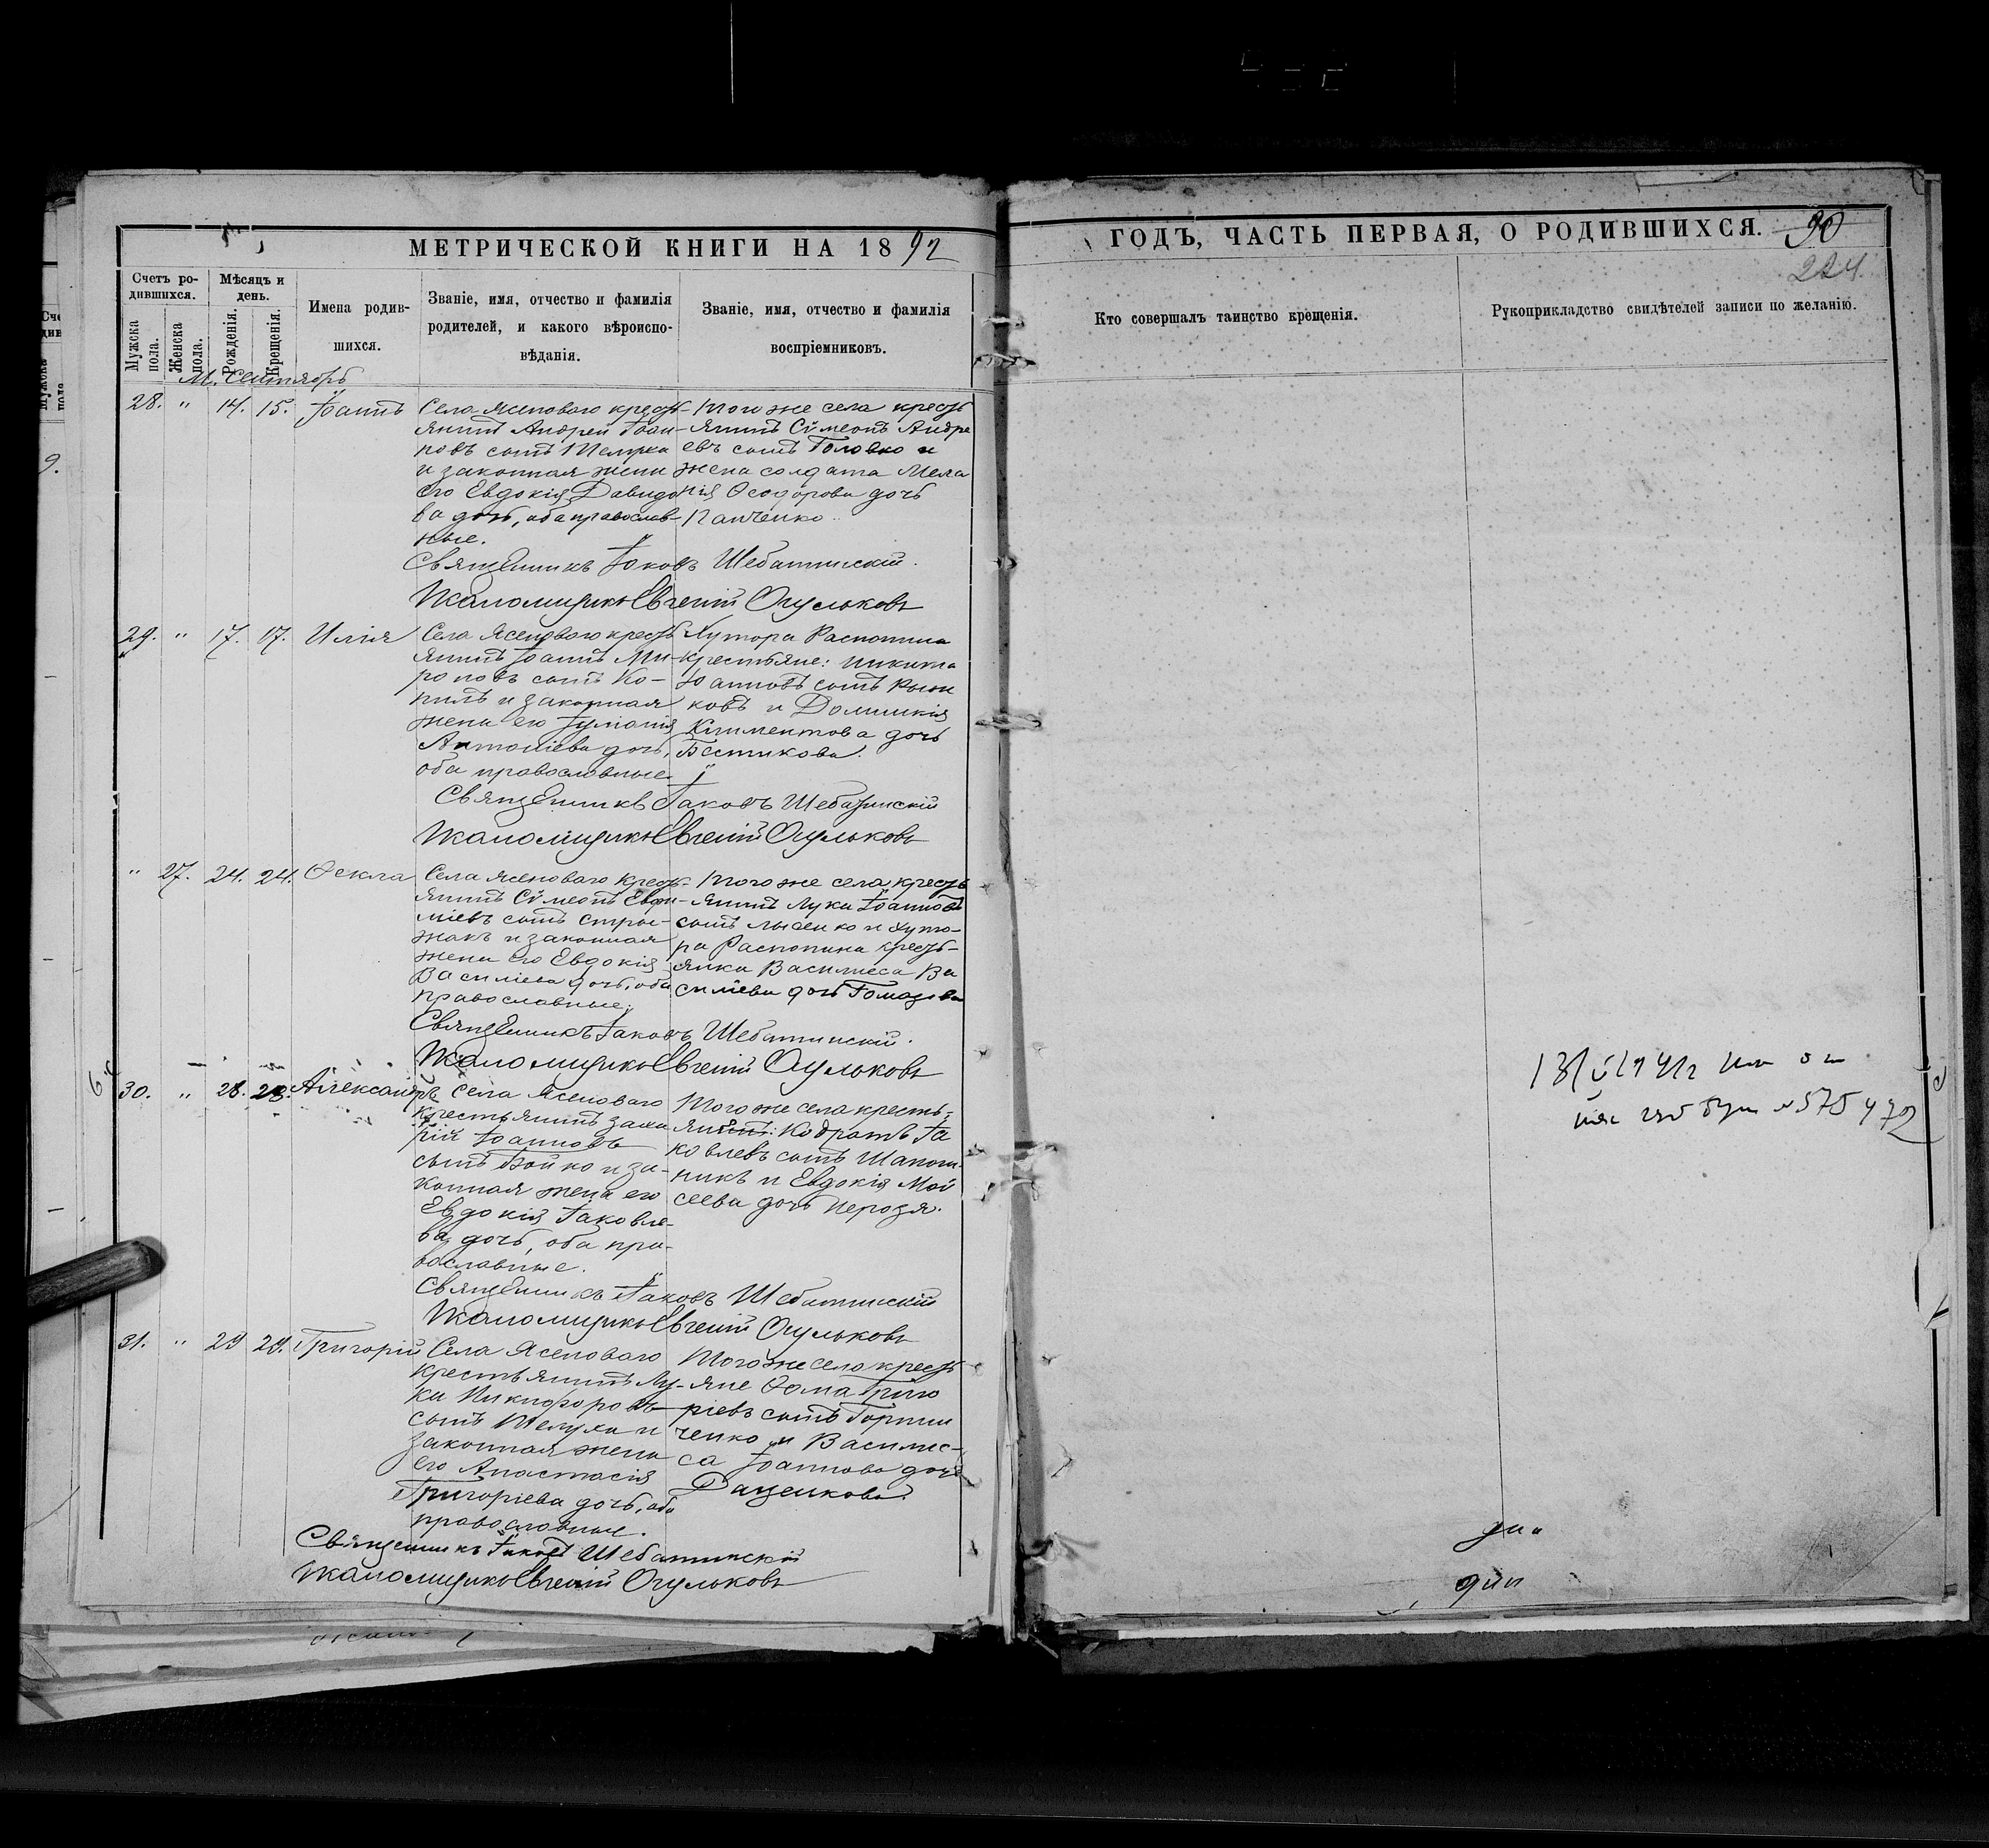 МЕТРИЧЕСКОЙ КНИГИ НА 1892
ГОДЪ, ЧАСТЬ ПЕРВАЯ, О РОДИВШИХСЯ.
90
224
Счетъ ро-
дившихся.
Мужска
пола.
Женска
пола.
Мѣсяцъ и
день.
Рожденія.
Крещенія.
Имена родив-
шихся.
Званіе, имя, отчество и фамилія
родителей, и какого вѣроиспо-
вѣданія.
Званіе, имя, отчество и фамилія
воспріемниковъ.
Кто совершалъ таинство крещенія.
Рукоприкладство свидѣтелей записи по желанію.
М. Сентябрь
28. " 14. 15. Іоаннъ
Села Ясеноваго кресть-
янинъ Андрей Іоан-
новъ сынъ
и законная жена
его Евдокія Давидо
ва дочь, оба православ-
ные.
Того же села кресть
янинъ Сѵмеонъ Андре
евъ сынъ Головко и
жена солдата Мела
нія Ѳеодорова дочь
Панченко.
Священникъ Іаковъ Шебатинскій.
Псаломщикъ Евгеній Огульковъ
29. " 17. 17. Илія
Села Ясеноваго кресть
янинъ Іоаннъ Ми-
роновъ сынъ Ко-
пилъ и законная
жена его Іуліанія
Антоніева дочь,
оба православные.
Хутора Распопина
крестьяне: Никита
Іоанновъ сынъ Рыжи
ковъ и Домникія
Климентова дочь
Священникъ Іаковъ Шебатинскій
Псаломщикъ Евгеній Огульковъ
" 27. 24. 24. Ѳекла
Села Ясеноваго кресть-
янинъ Сѵмеонъ Евфи-
міевъ сынъ
и законная
жена его Евдокія
Василіева дочь, оба
православные.
Того же села кресть
янинъ Лука Іоанновъ
сынъ Лысенко и хуто-
ра Распопина кресть-
янка Василиса Ва
силіева дочь
Священникъ Іаковъ Шебатинскій.
Псаломщикъ Евгеній Огульковъ
30. " 28. 28. Александръ
Села Ясеноваго
крестьянинъ Заха
рій Іоанновъ
сынъ Бойко и за-
конная жена его
Евдокія Іаковле-
ва дочь, оба пра-
вославные.
Того же села кресть-
янинъ: Кодратъ Іа
ковлевъ сынъ Шапош-
никъ и Евдокія Мои
сеева дочь
Священникъ Іаковъ Шебатинскій
Псаломщикъ Евгеній Огульковъ
31. " 29 29. Григорій
Села Ясеноваго
крестьянинъ Лу-
ка Никифоровъ
сынъ Шелуха и
законная жена
его Анастасія
Григоріева дочь, оба
православные.
Того же села кресть
яне Ѳома Григо
ріевъ сынъ
и Василис-
са Іоаннова дочь
Даценкова.
Священникъ Іаковъ Шебатинскій
Псаломщикъ Евгеній Огульковъ